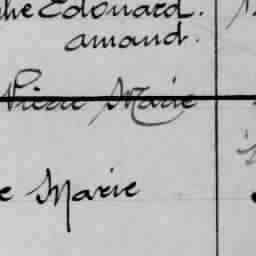 he Edouard.
amand.
Pierre Marie
e Marie